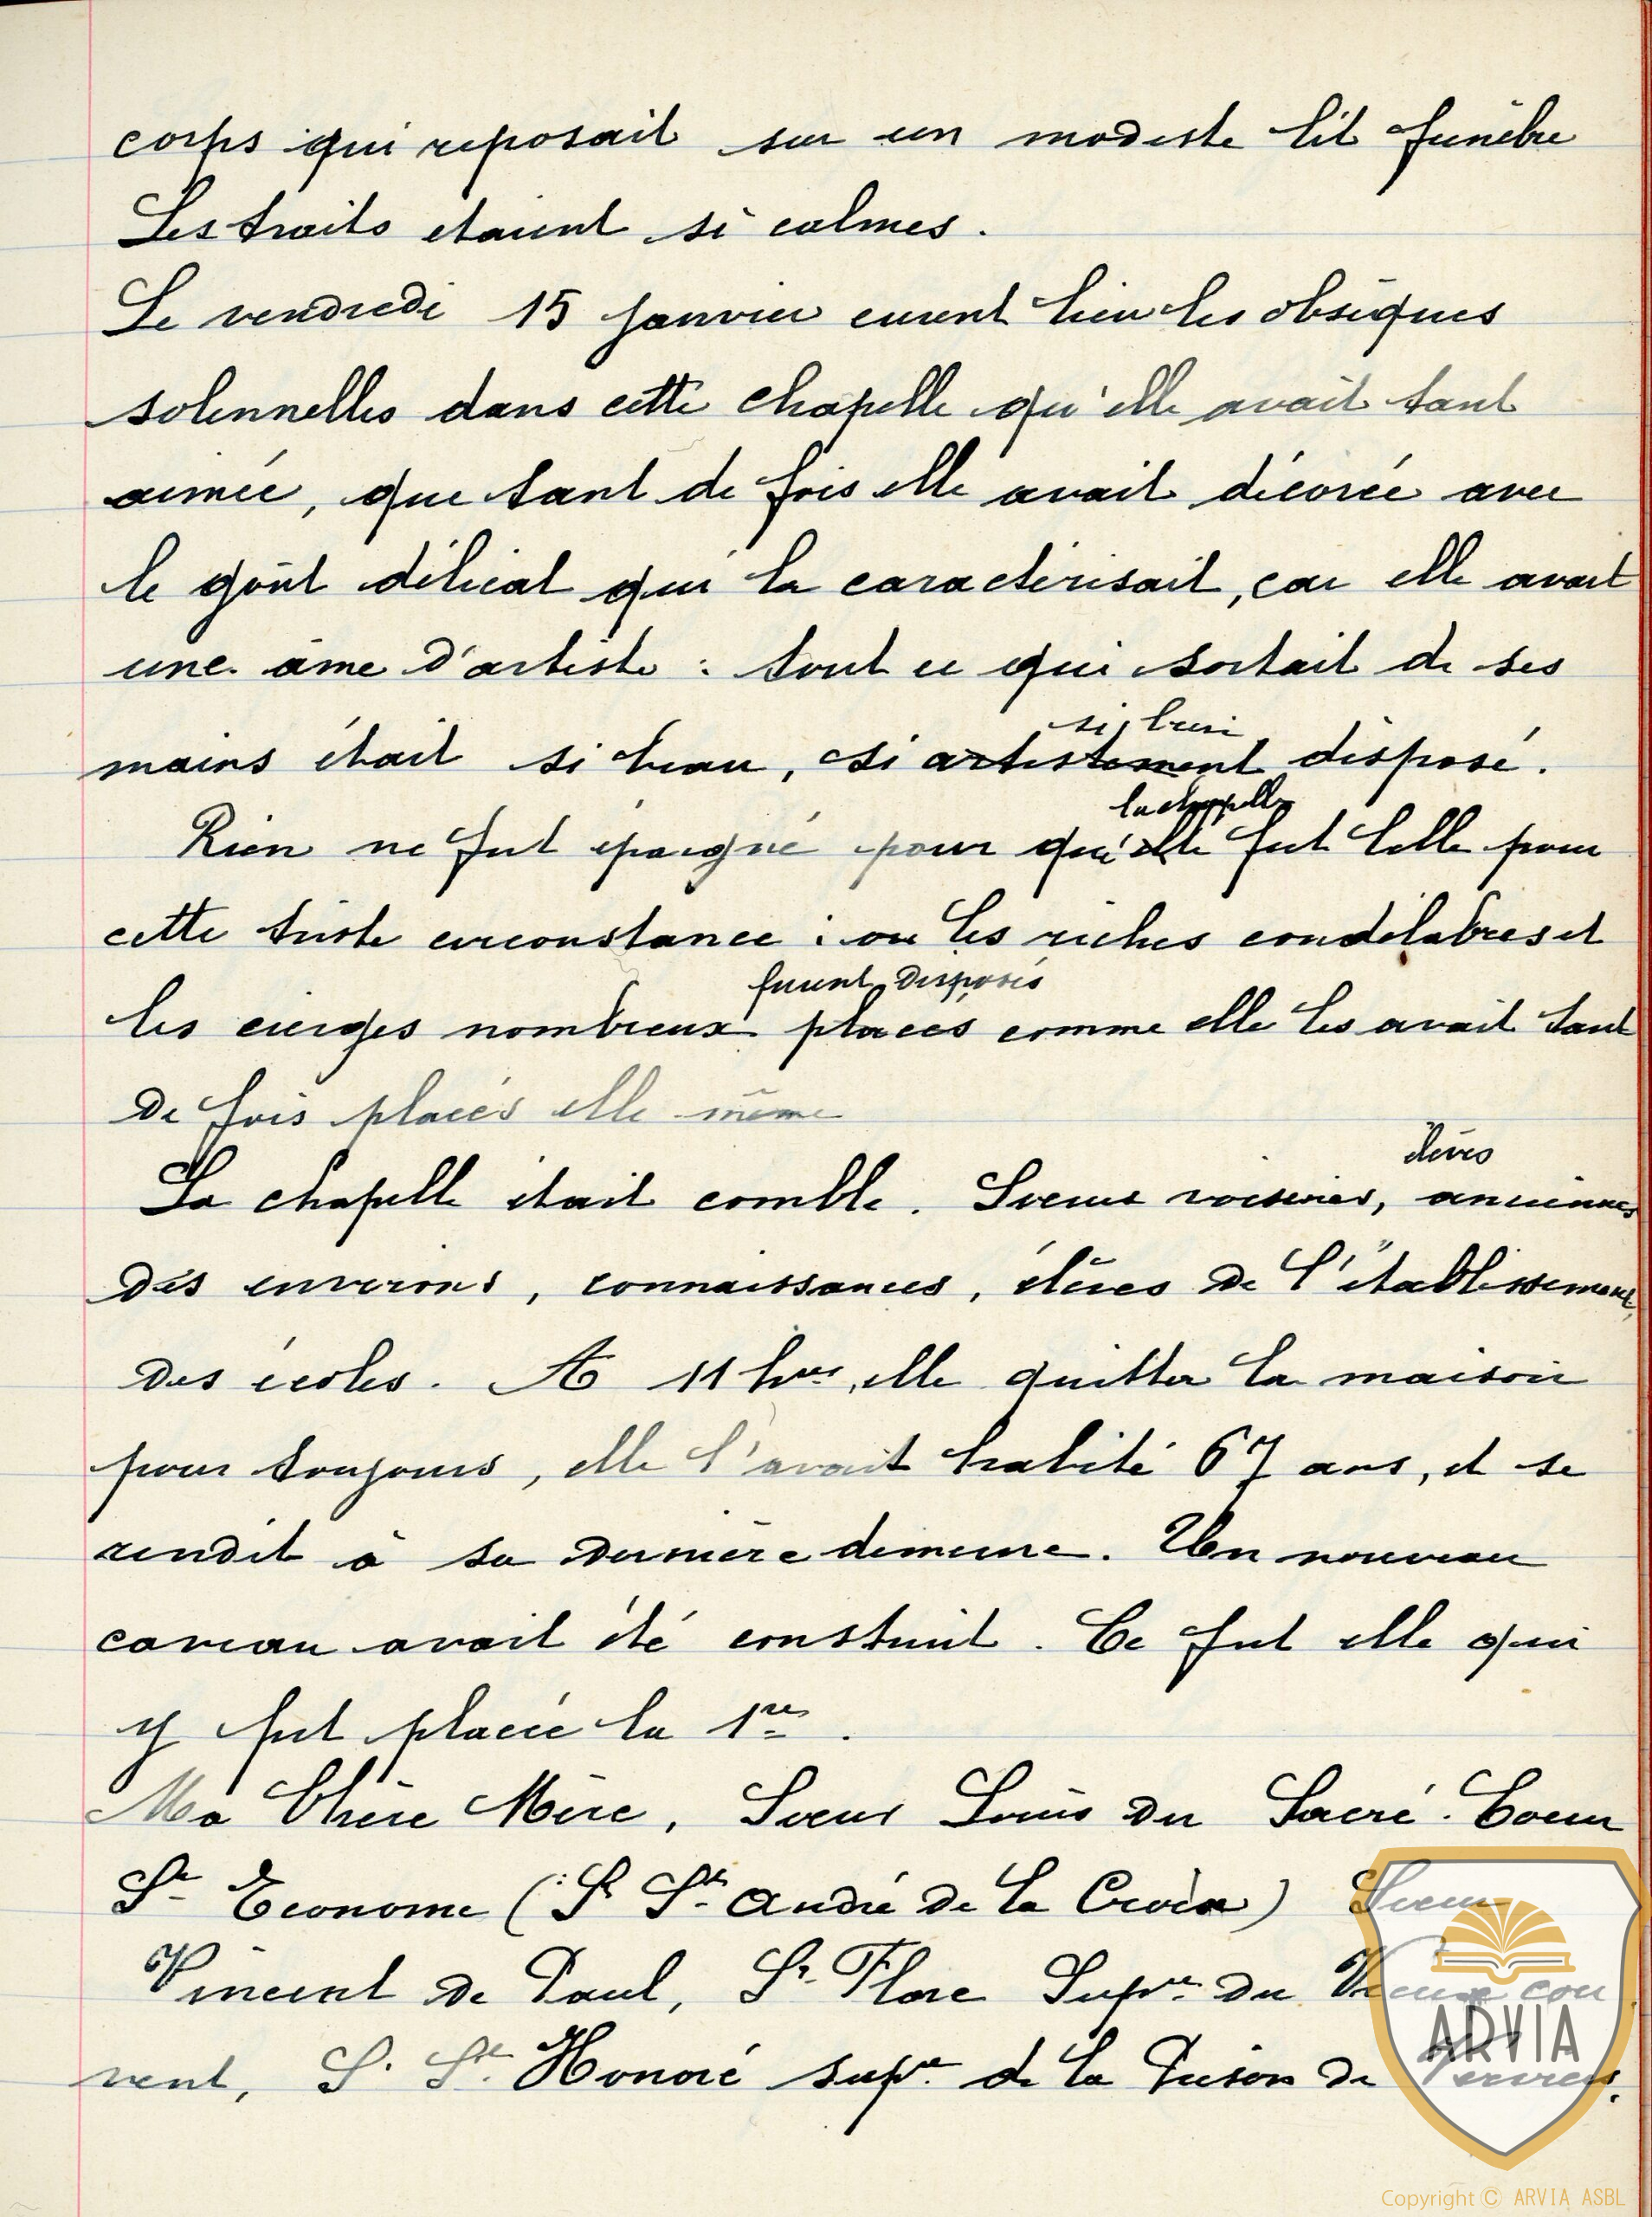 corps qui reposait sur un modeste lit funèbre
Les traits étaient si calmes.
Le vendredi 15 Janvier eurent lieu les obsèques
solennelles dans cette chapelle qu'elle avait tant
aimée, que tant de fois elle avait décorée avec
le goût délicat qui la caractérisait, car elle avait
une âme d'artiste : tout ce qui sortait de ses
si bien
mains était si beau, si artistement disposé.
la chapelle
Rien ne fut épargné pour qu'elle fut telle pour
cette triste circonstance : ou les riches candélabres et
furent disposés
les cierges nombreux placés comme elle les avait tant
de fois placés elle-même
élèves
La chapelle était comble. Soeurs voisines, anciennes
des environs, connaissances, élèves de l'établissement,
des écoles. A 11 hres, elle quitta la maison
pour toujours, elle l'avait habité 67 ans, et se
rendit à sa dernière demeure. Un nouveau
caveau avait été construit. Ce fut elle qui
y fut placée la 1re.
Ma Chère Mère, Soeur Louis du Sacré-Coeur
Sr Econome (S. St André de la Croix) Soeur
Vincent de Paul, Sr. Flore Supre du Vieux cou
vent, S. St. Honoré supre de la Prison de Verviers.
ARVIA
Copyright © ARVIA ASBL